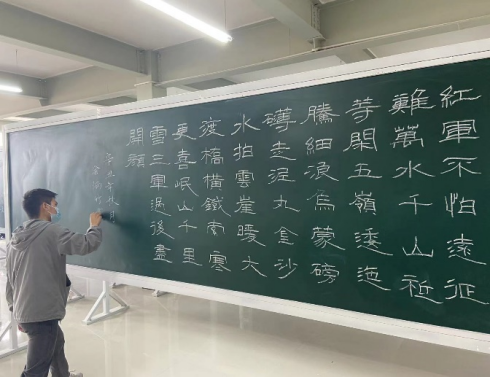 紅軍不怕遠征
難萬水千山祗
等閑五嶺逶迤
騰細浪烏蒙磅
礴走泥丸金沙
水拍雲崖暖大
渡橋橫鐵索寒
更喜岷山千里
雪三軍過後盡
開顏